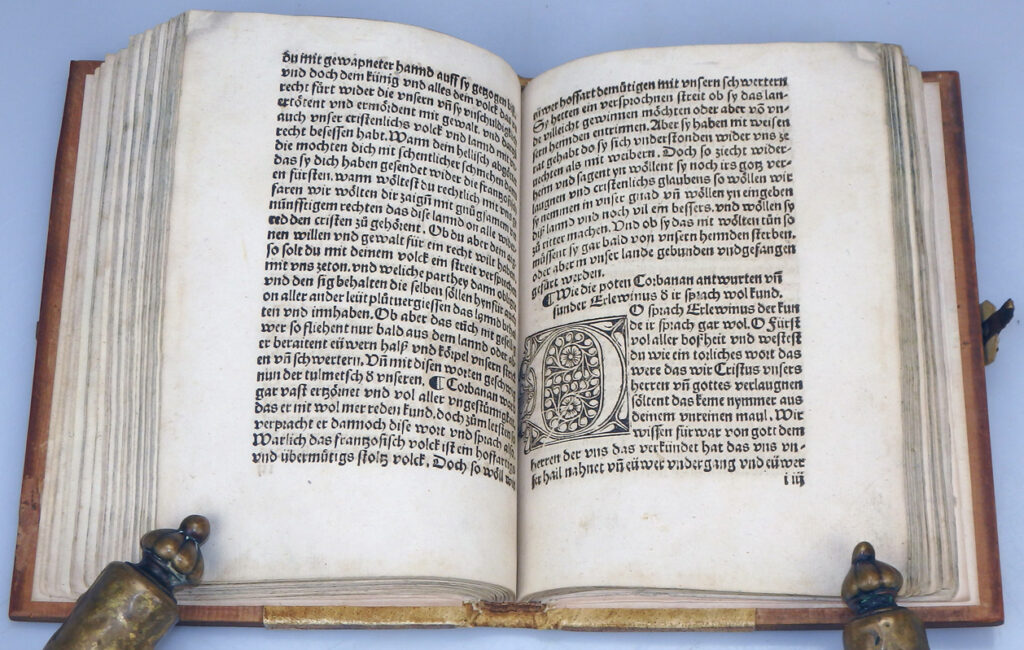 du mit gewapneter hannd auff sy getzogen
vnd doch dem künig vnd alles dem volck
recht fürt wider die vnsern vn̄ sy vnschuldig
ertötent vnd ermördent mit gewalt. vnd
auch vnser cristenlichs volck vnd lannd mit
recht besessen habt. Wann dem hellisch abgöt
die mochten dich nit schentlicher schmehen dann
das sy dich haben gesendet wider die frantzosi
en fürsten. wann wöltest du rechtlich mit
faren wir wölten dir zaigñ mit gnůgsamen
nünfftigem rechten das dise lannd on alle wider
red den cristen zů gehörent. Ob du aber dem
nen willen vnd gewalt für ein recht wilt haben
so solt du mit deinem volck ein streit versprechen
mit vns zeton. vnd weliche parthey dann
vnd den sig behalten die selben söllen hynfür
on aller ander leüt plůtuergiessen das lannd
ten vnd innhaben. Ob aber das eüch nit
wer so fliehent nur bald aus dem lannd oder
er beraitent eüwern halß vnd körpel vnsern
en vn̄ schwertern. Vn̄ mit disen worten geschwig
nun der tulmetsch ð vnseren. ¶ Corbanan
gar vast ertzörnet vnd vol aller vngestümi
das er nit wol mer reden kund. doch zům letsten
verpracht er dannoch dise wort vnd sprach also.
Warlich das frantzosisch volck ist ein hoffartigs
vnd übermütigs stoltz volck. Doch so wöll wir
eüwer hoffart demütigen mit vnsern schwertern
Sy hetten ein versprochnen streit ob sy das lan-
de villeicht gewinnen möchten oder aber vō vn-
sern hennden entrinnen. Aber sy haben nit weisen
rat gehabt do sy sich vnderstonden wider vns ze
uechten als mit weibern. Doch so ziecht wider-
heim vnd sagent yn wöllent sy noch irs gotz ver-
laugnen vnd cristenlichs glaubens so wöllen wir
sy nemmen in vnser gnad vn̄ wöllen yn eingeben
diß lannd vnd noch vil ein bessers. vnd wöllen sy
zů ritter machen. Vnd ob sy das nit wölten tůn so
müssent sy gar bald von vnsern hennden sterben.
oder aber in vnser lande gebunden vnd gefangen
gefürt werden.
¶ Wie die poten Corbanan antwurten vn̄
sunder Erlewinus ð ir sprach wol kund.
O sprach Erlewinus der kun
de ir sprach gar wol. O Fürst
vol aller boßheit vnd westest
du wie ein torliches wort das
were das wir Cristus vnsers
herren vn̄ gottes verlaugnen
söltent das keme nymmer aus
deinem vnreinen maul. Wir
wissen fürwar von gott dem
herren der vns das verkündet hat das vns vn-
ser hail nahnet vn̄ eüwer vndergang vnd eüwer
i iij